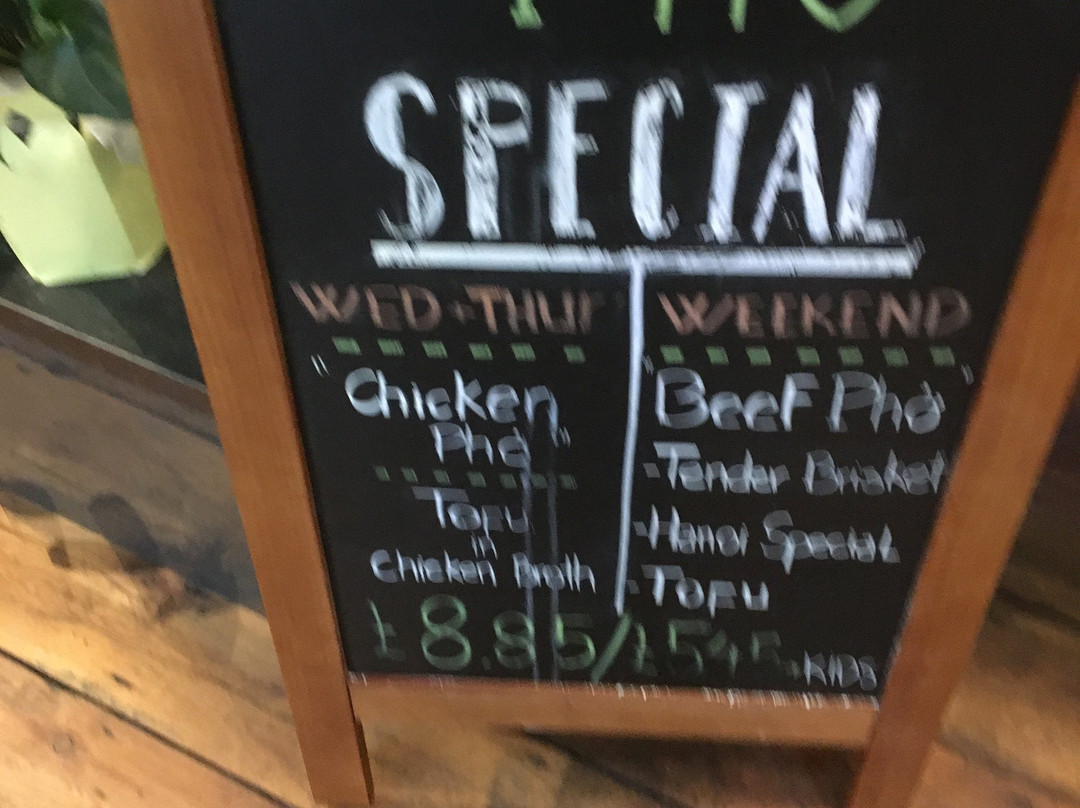 SPECIAL
WED + THUR
"Chicken
Pho"
Tofu
in
Chicken Broth
WEEKEND
"Beef Pho"
- Tender Brisket
- Hanoi Special
- Tofu
£8.85/£5.45 KIDS